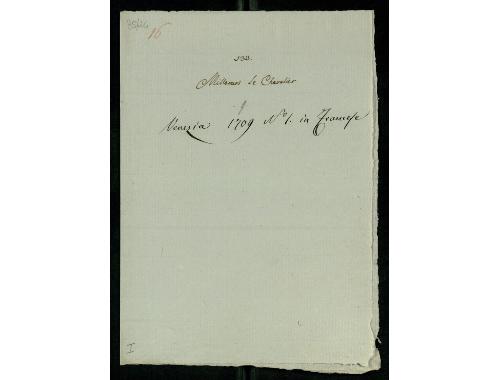 16
533.
Millerand le Chevalier
Venezia 1709 N.º 1. in Francese
I